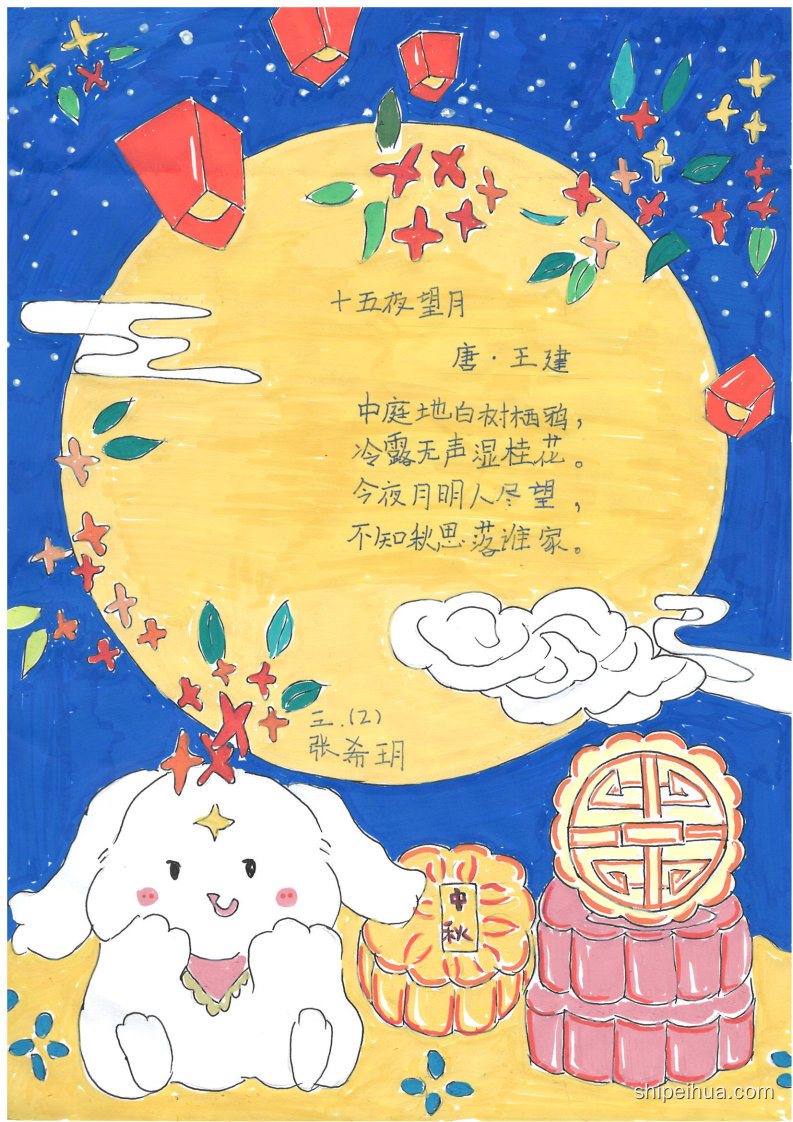 十五夜望月
唐·王建
中庭地白树栖鸦，
冷露无声湿桂花。
今夜月明人尽望，
不知秋思落谁家。
三.(2)
张希玥
中
秋
shipeihua.com